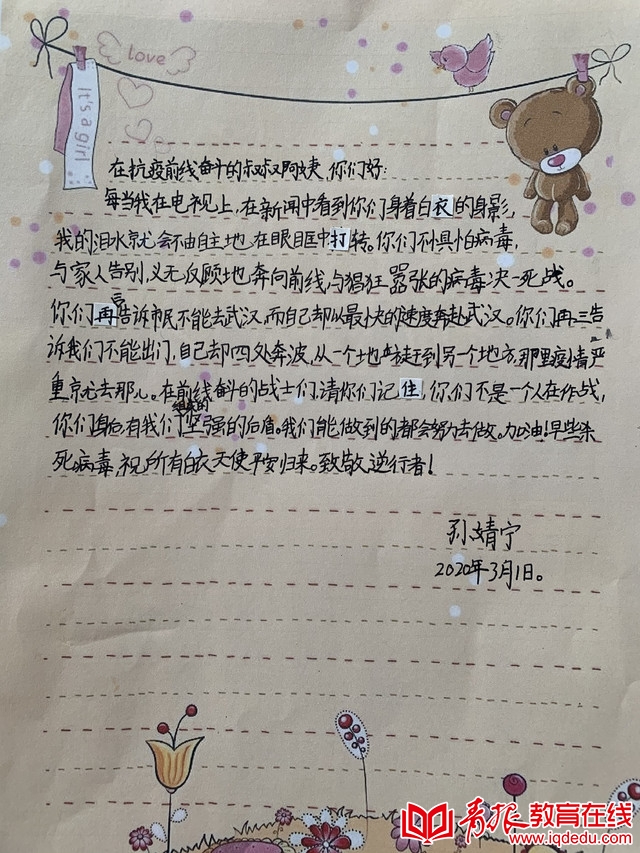 love
It's a girl
在抗疫前线奋斗的叔叔阿姨,你们好:
每当我在电视上,在新闻中看到你们身着白衣的身影,
我的泪水就会不由自主地在眼眶中打转。你们不惧怕病毒,
与家人告别,义无反顾地奔向前线,与猖狂嚣张的病毒决一死战。
你们再三告诉市民不能去武汉,而自己却以最快的速度奔赴武汉。你们再三告
诉我们不能出门,自己却四处奔波,从一个地方走到另一个地方,那里疫情严
重就去那儿。在前线奋斗的战士们,请你们记住,你们不是一个人在作战,
你们身后,有我们组成的坚强的后盾。我们能做到的都会努力去做。加油!早些杀
死病毒,祝所有白衣天使平安归来。致敬逆行者!
孙婧宁
2020年3月1日。
青报教育在线
www.iqdedu.com